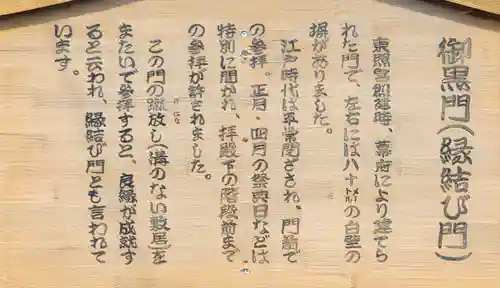 御黒門(縁結び門)
東照宮創建時、幕府により建てら
れた門で、左右には八十㍍の白壁の
塀がありました。
江戸時代は平常閉ざされ、門前で
の参拝。正月・四月の祭典日などは
特別に開かれ、拝殿下の階段前まで
の参拝が許されました。
この門の蹴放し(溝のない敷居)を
け はな
またいで参拝すると、良縁が成就す
ると云われ、縁結び門とも言われて
います。